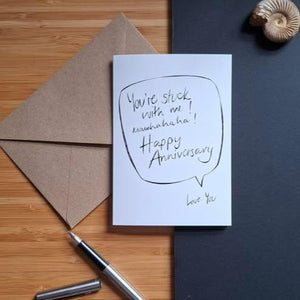 You're stuck
with me!
muahahaha!
Happy
Anniversary
Love You